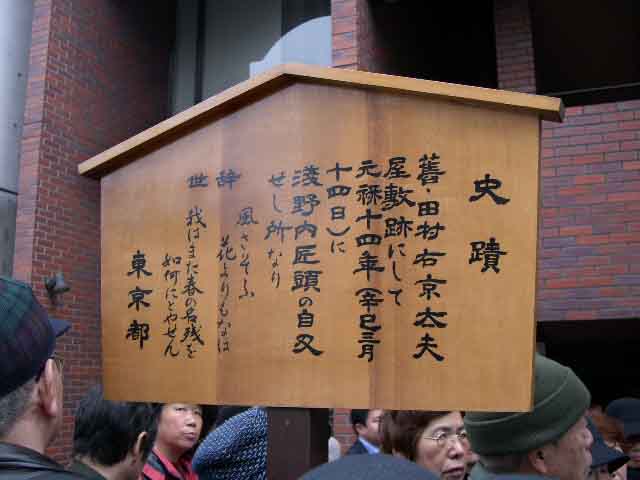 史蹟
舊・田村右京太夫
屋敷跡にして
元禄十四年(辛巳三月
十四日)に
浅野内匠頭の自刃
せし所なり
辞
世
風さそふ
花よりもなほ
我はまた春の名残を
如何にとやせん
東京都